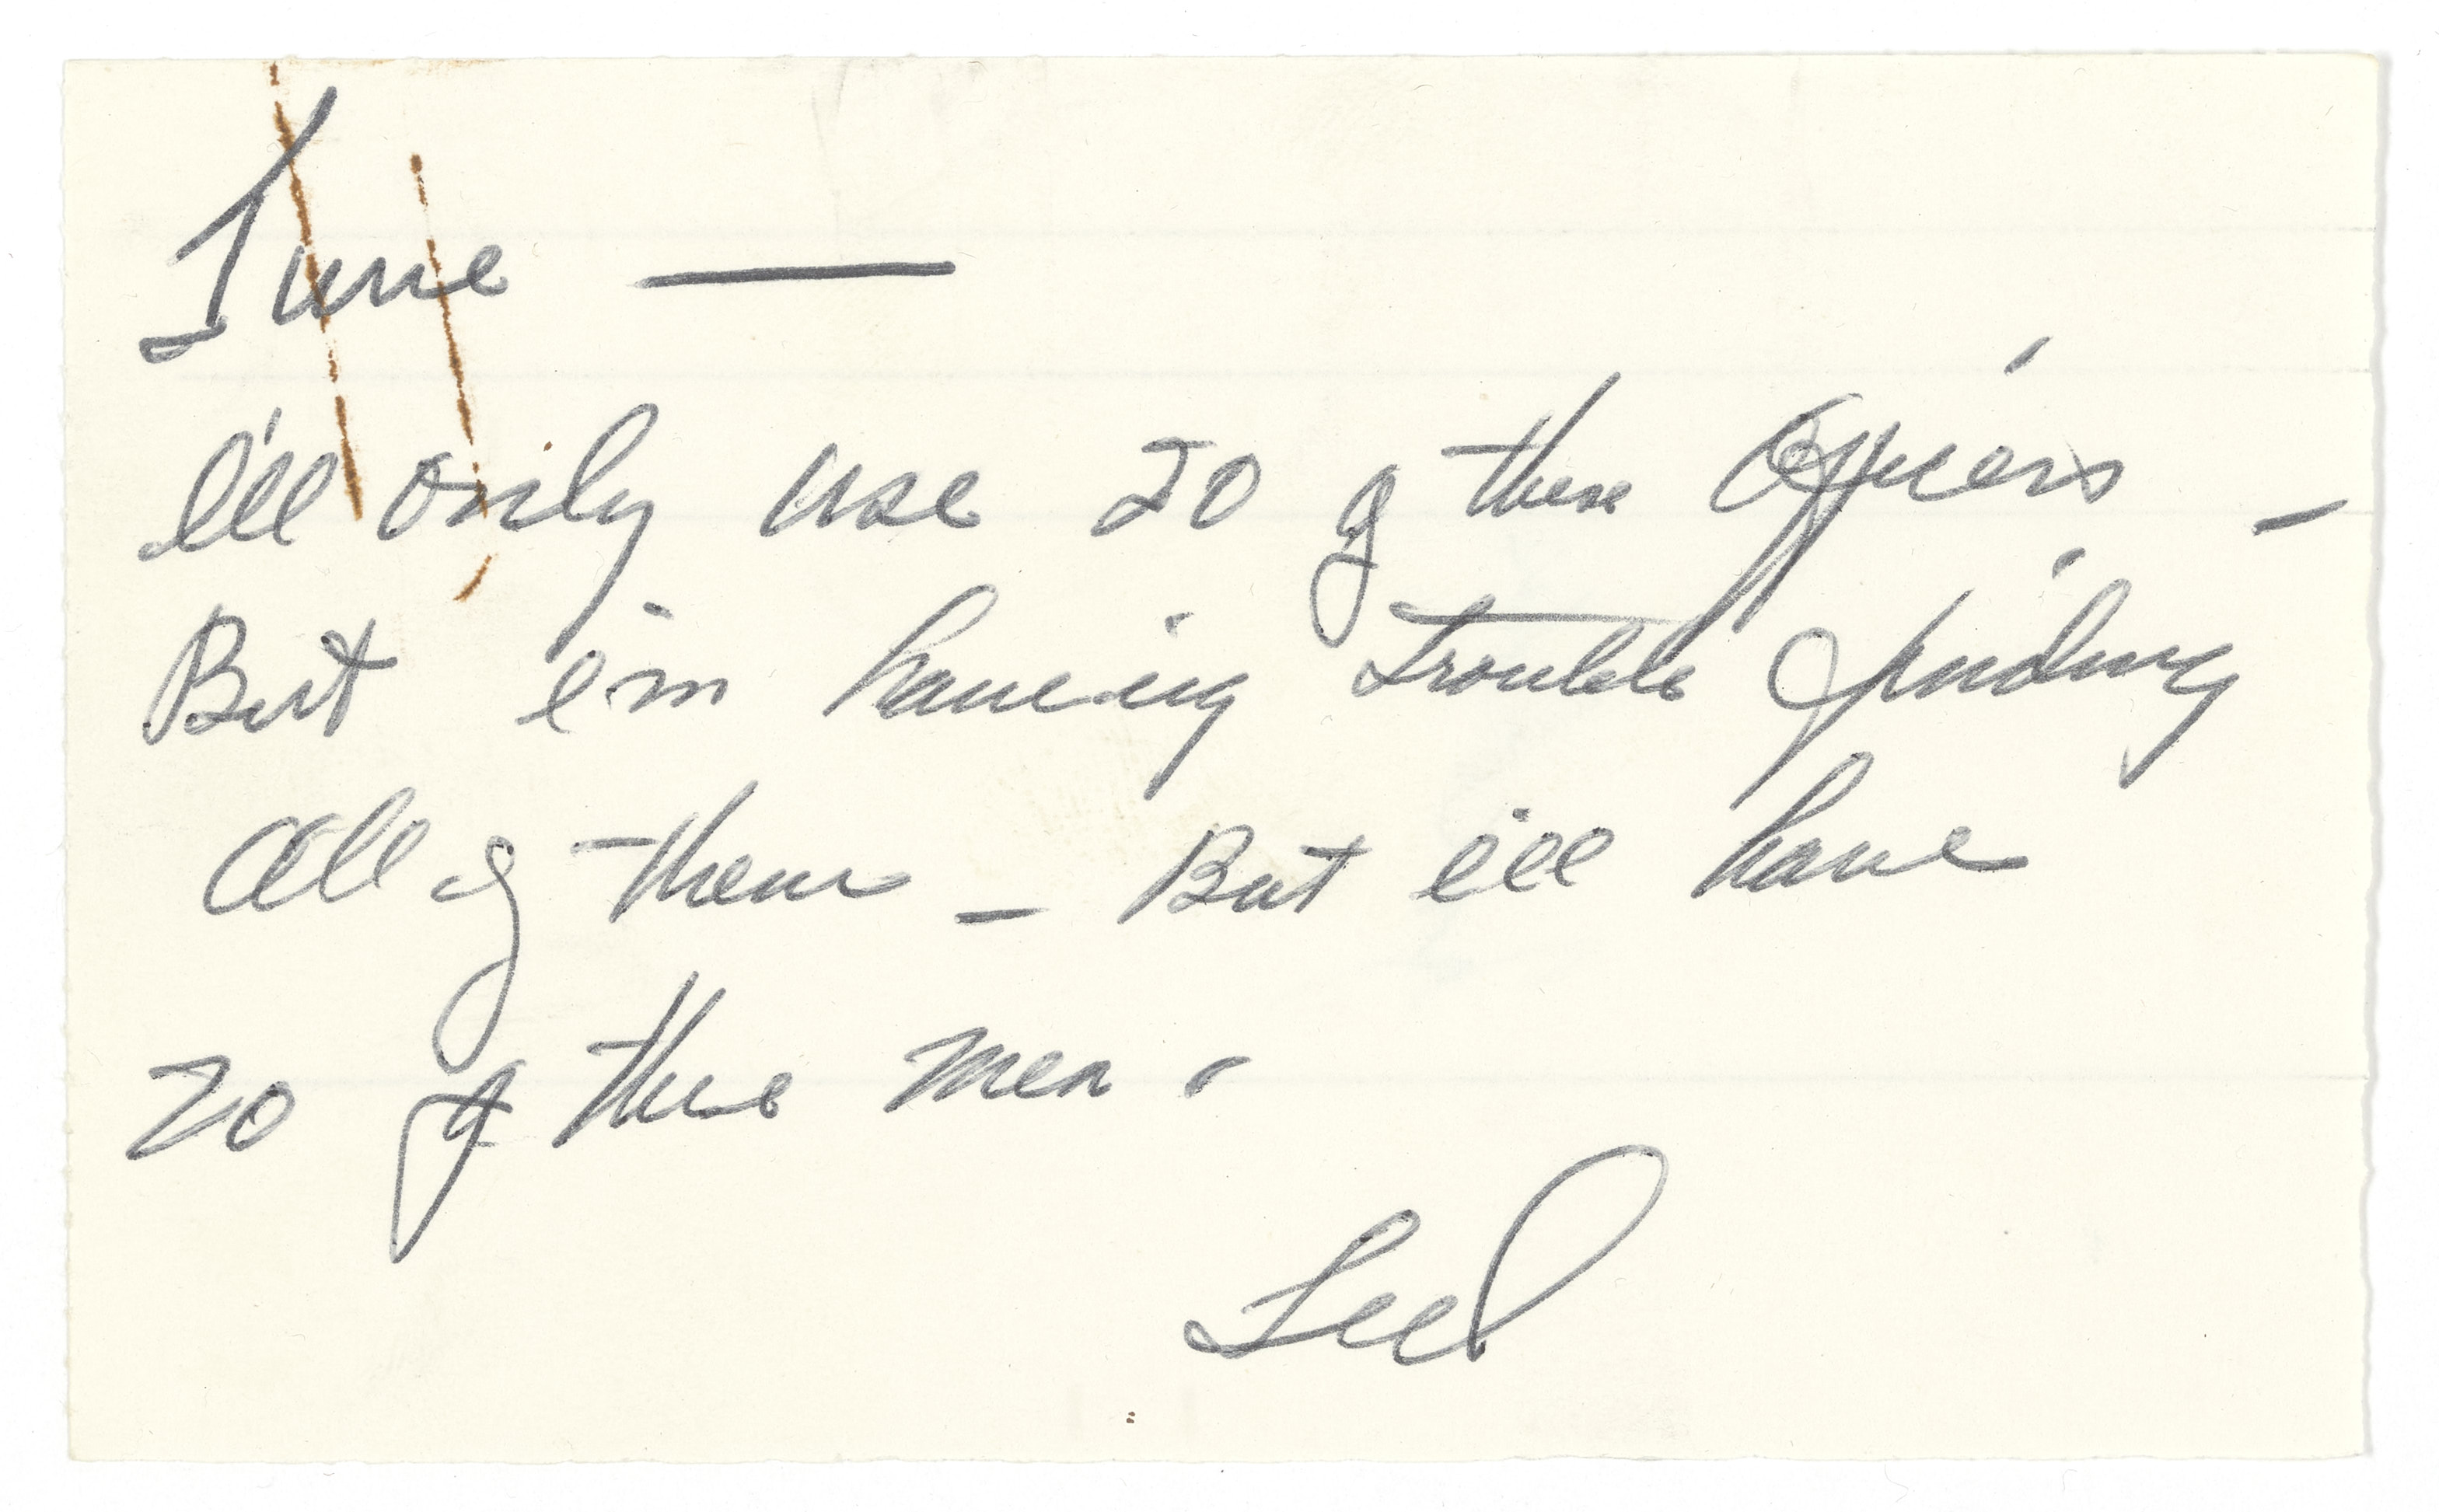 June —
I'll only use 20 of these Officers —
But i'm having trouble finding
All of them — But i'll have
20 of these men.